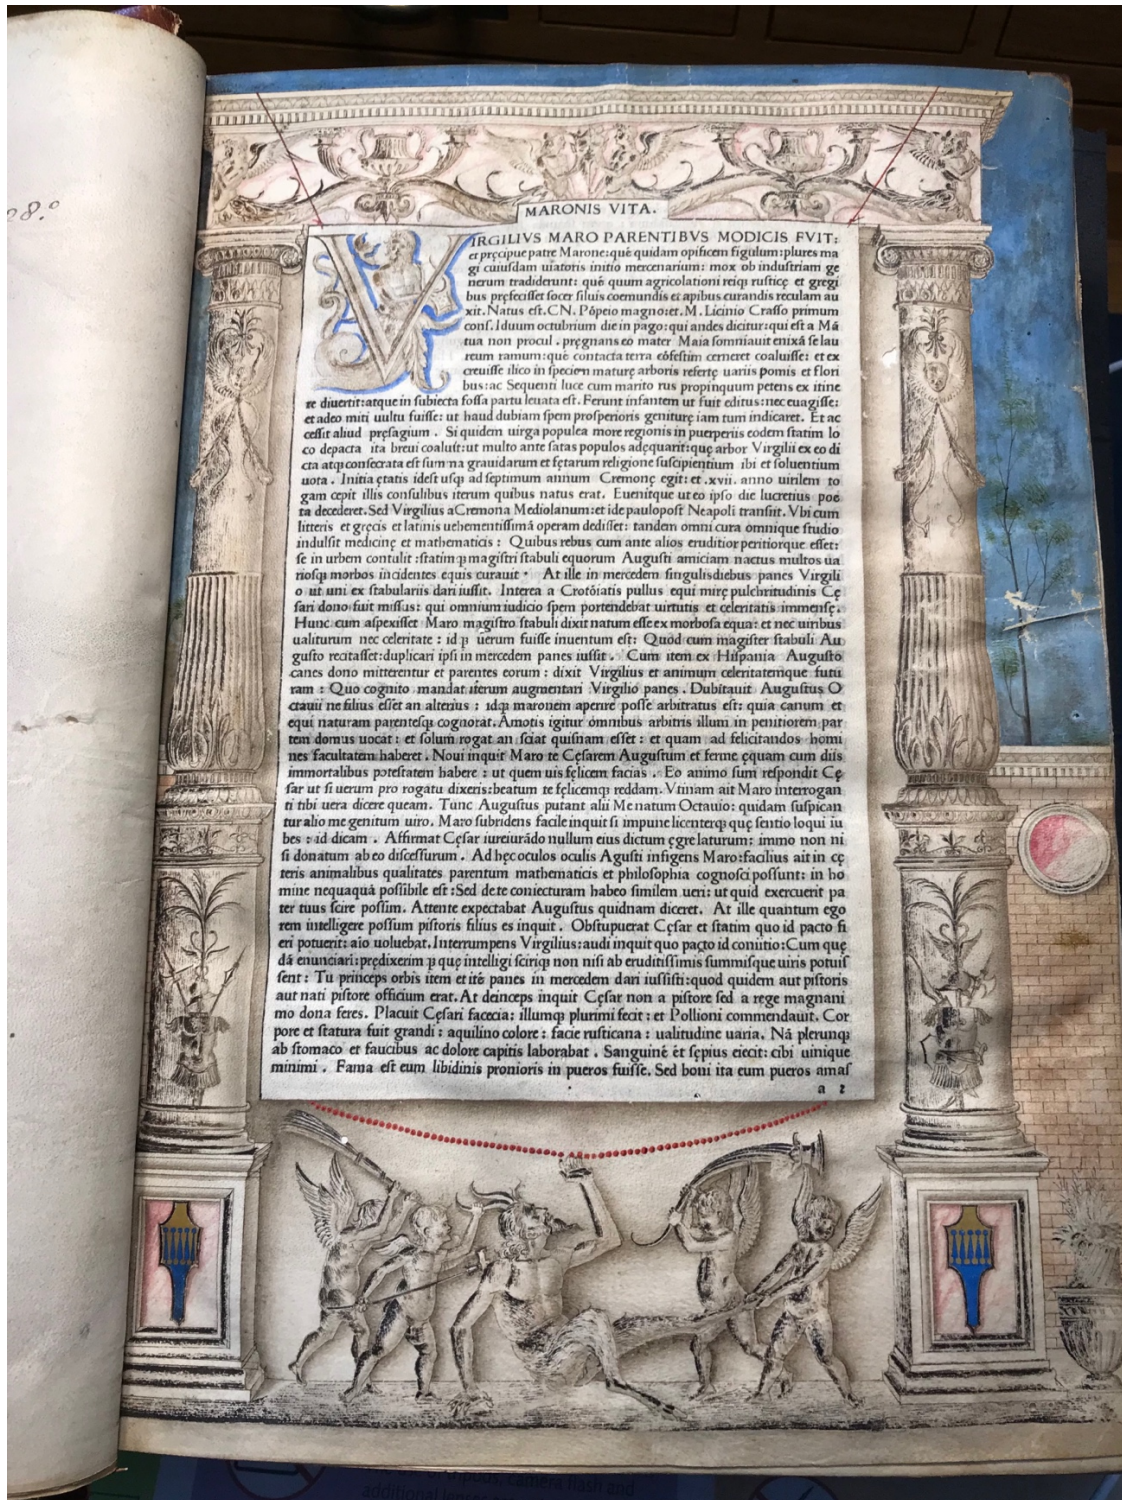 28.º
MARONIS VITA.
VIRGILIVS MARO PARENTIBVS MODICIS FVIT:
et pręcipue patre Marone: quē quidam opificem figulum: plures ma
gi cuiusdam uiatoris initio mercenarium: mox ob industriam ge
nerum tradiderunt: quē quum agricolationi reiqȝ rusticę et gregi
bus pręfecisset socer siluis coemundis et apibus curandis reculam au
xit. Natus est. CN. Pōpeio magno: et. M. Licinio Crasso primum
cons. Iduum octubrium die in pago: qui andes dicitur: qui est a Mā
tua non procul. pręgnans eo mater Maia somniauit enixā se lau
reum ramum: quē contacta terra cōfestim cerneret coaluisse: et ex
creuisse ilico in speciem maturę arboris refertę uariis pomis et flori
bus: ac Sequenti luce cum marito rus propinquum petens ex itine
re diuertit: atque in subiecta fossa partu leuata est. Ferunt infantem ut fuit editus: nec euagisse:
et adeo miti uultu fuisse: ut haud dubiam spem prosperioris geniturę iam tum indicaret. Et ac
cessit aliud pręsagium. Si quidem uirga populea more regionis in puerperiis eodem statim lo
co depacta ita breui coaluit: ut multo ante satas populos adęquarit: quę arbor Virgilii ex eo di
cta atqȝ consecrata est summa grauidarum et fętarum religione suscipientium ibi et soluentium
uota. Initia ętatis idest usqȝ ad septimum annum Cremonę egit: et .xvii. anno uirilem to
gam cepit illis consulibus iterum quibus natus erat. Euenitque ut eo ipso die lucretius poe
ta decederet. Sed Virgilius a Cremona Mediolanum: et ide paulopost Neapoli transiit. Vbi cum
litteris et gręcis et latinis uehementissimā operam dedisset: tandem omni cura omnique studio
indulsit medicinę et mathematicis: Quibus rebus cum ante alios eruditior peritiorque esset:
se in urbem contulit: statimqȝ magistri stabuli equorum Augusti amiciam nactus multos ua
riosqȝ morbos incidentes equis curauit. At ille in mercedem singulis diebus panes Virgili
o ut uni ex stabulariis dari iussit. Interea a Crotōiatis pullus equi mirę pulchritudinis Cę
sari dono fuit missus: qui omnium iudicio spem portendebat uirtutis et celeritatis immensę.
Hunc cum aspexisset Maro magistro stabuli dixit natum esse ex morbosa equa: et nec uiribus
ualiturum nec celeritate: id ꝓ uerum fuisse inuentum est: Quod cum magister stabuli Au
gusto recitasset: duplicari ipsi in mercedem panes iussit. Cum item ex Hispania Augusto
canes dono mitterentur et parentes eorum: dixit Virgilius et animum celeritatemque futu
ram: Quo cognito mandat iterum augmentari Virgilio panes. Dubitauit Augustus O
ctauii ne filius esset an alterius: idqȝ maronem aperire posse arbitratus est: quia canum et
equi naturam parentesqȝ cognorat. Amotis igitur omnibus arbitris illum in penitiorem par
tem domus uocat: et solum rogat an sciat quisnam esset: et quam ad felicitandos homi
nes facultatem haberet. Noui inquit Maro te Cęsarem Augustum et ferme ęquam cum diis
immortalibus potestatem habere: ut quem uis fęlicem facias. Eo animo sum respondit Cę
sar ut si uerum pro rogatu dixeris: beatum te fęlicemqȝ reddam. Vtinam ait Maro interrogan
ti tibi uera dicere queam. Tunc Augustus putant alii Me natum Octauio: quidam suspican
tur alio me genitum uiro. Maro subridens facile inquit si impune licenterqȝ quę sentio loqui iu
bes: id dicam. Affirmat Cęsar iureiurādo nullum eius dictum ęgre laturum: immo non ni
si donatum ab eo discessurum. Ad hęc oculos oculis Agusti infigens Maro: facilius ait in cę
teris animalibus qualitates parentum mathematicis et philosophia cognosci possunt: in ho
mine nequaquā possibile est: Sed de te coniecturam habeo similem ueri: ut quid exercuerit pa
ter tuus scire possim. Attente expectabat Augustus quidnam diceret. At ille quantum ego
rem intelligere possum pistoris filius es inquit. Obstupuerat Cęsar et statim quo id pacto fi
eri potuerit: aio uoluebat. Interrumpens Virgilius: audi inquit quo pacto id coniitio: Cum quę
dā enunciari: prędixerim ꝓ quę intelligi scirīqȝ non nisi ab eruditissimis summisque uiris potuis
sent: Tu princeps orbis item et itē panes in mercedem dari iussisti: quod quidem aut pistoris
aut nati pistore officium erat. At deinceps inquit Cęsar non a pistore sed a rege magnani
mo dona feres. Placuit Cęsari facecia: illumqȝ plurimi fecit: et Pollioni commendauit. Cor
pore et statura fuit grandi: aquilino colore: facie rusticana: ualitudine uaria. Nā plerunqȝ
ab stomaco et faucibus ac dolore capitis laborabat. Sanguinē et sępius eiecit: cibi uinique
minimi. Fama est eum libidinis pronioris in pueros fuisse. Sed boni ita eum pueros amas
a 2
camera flash and
additional lenses